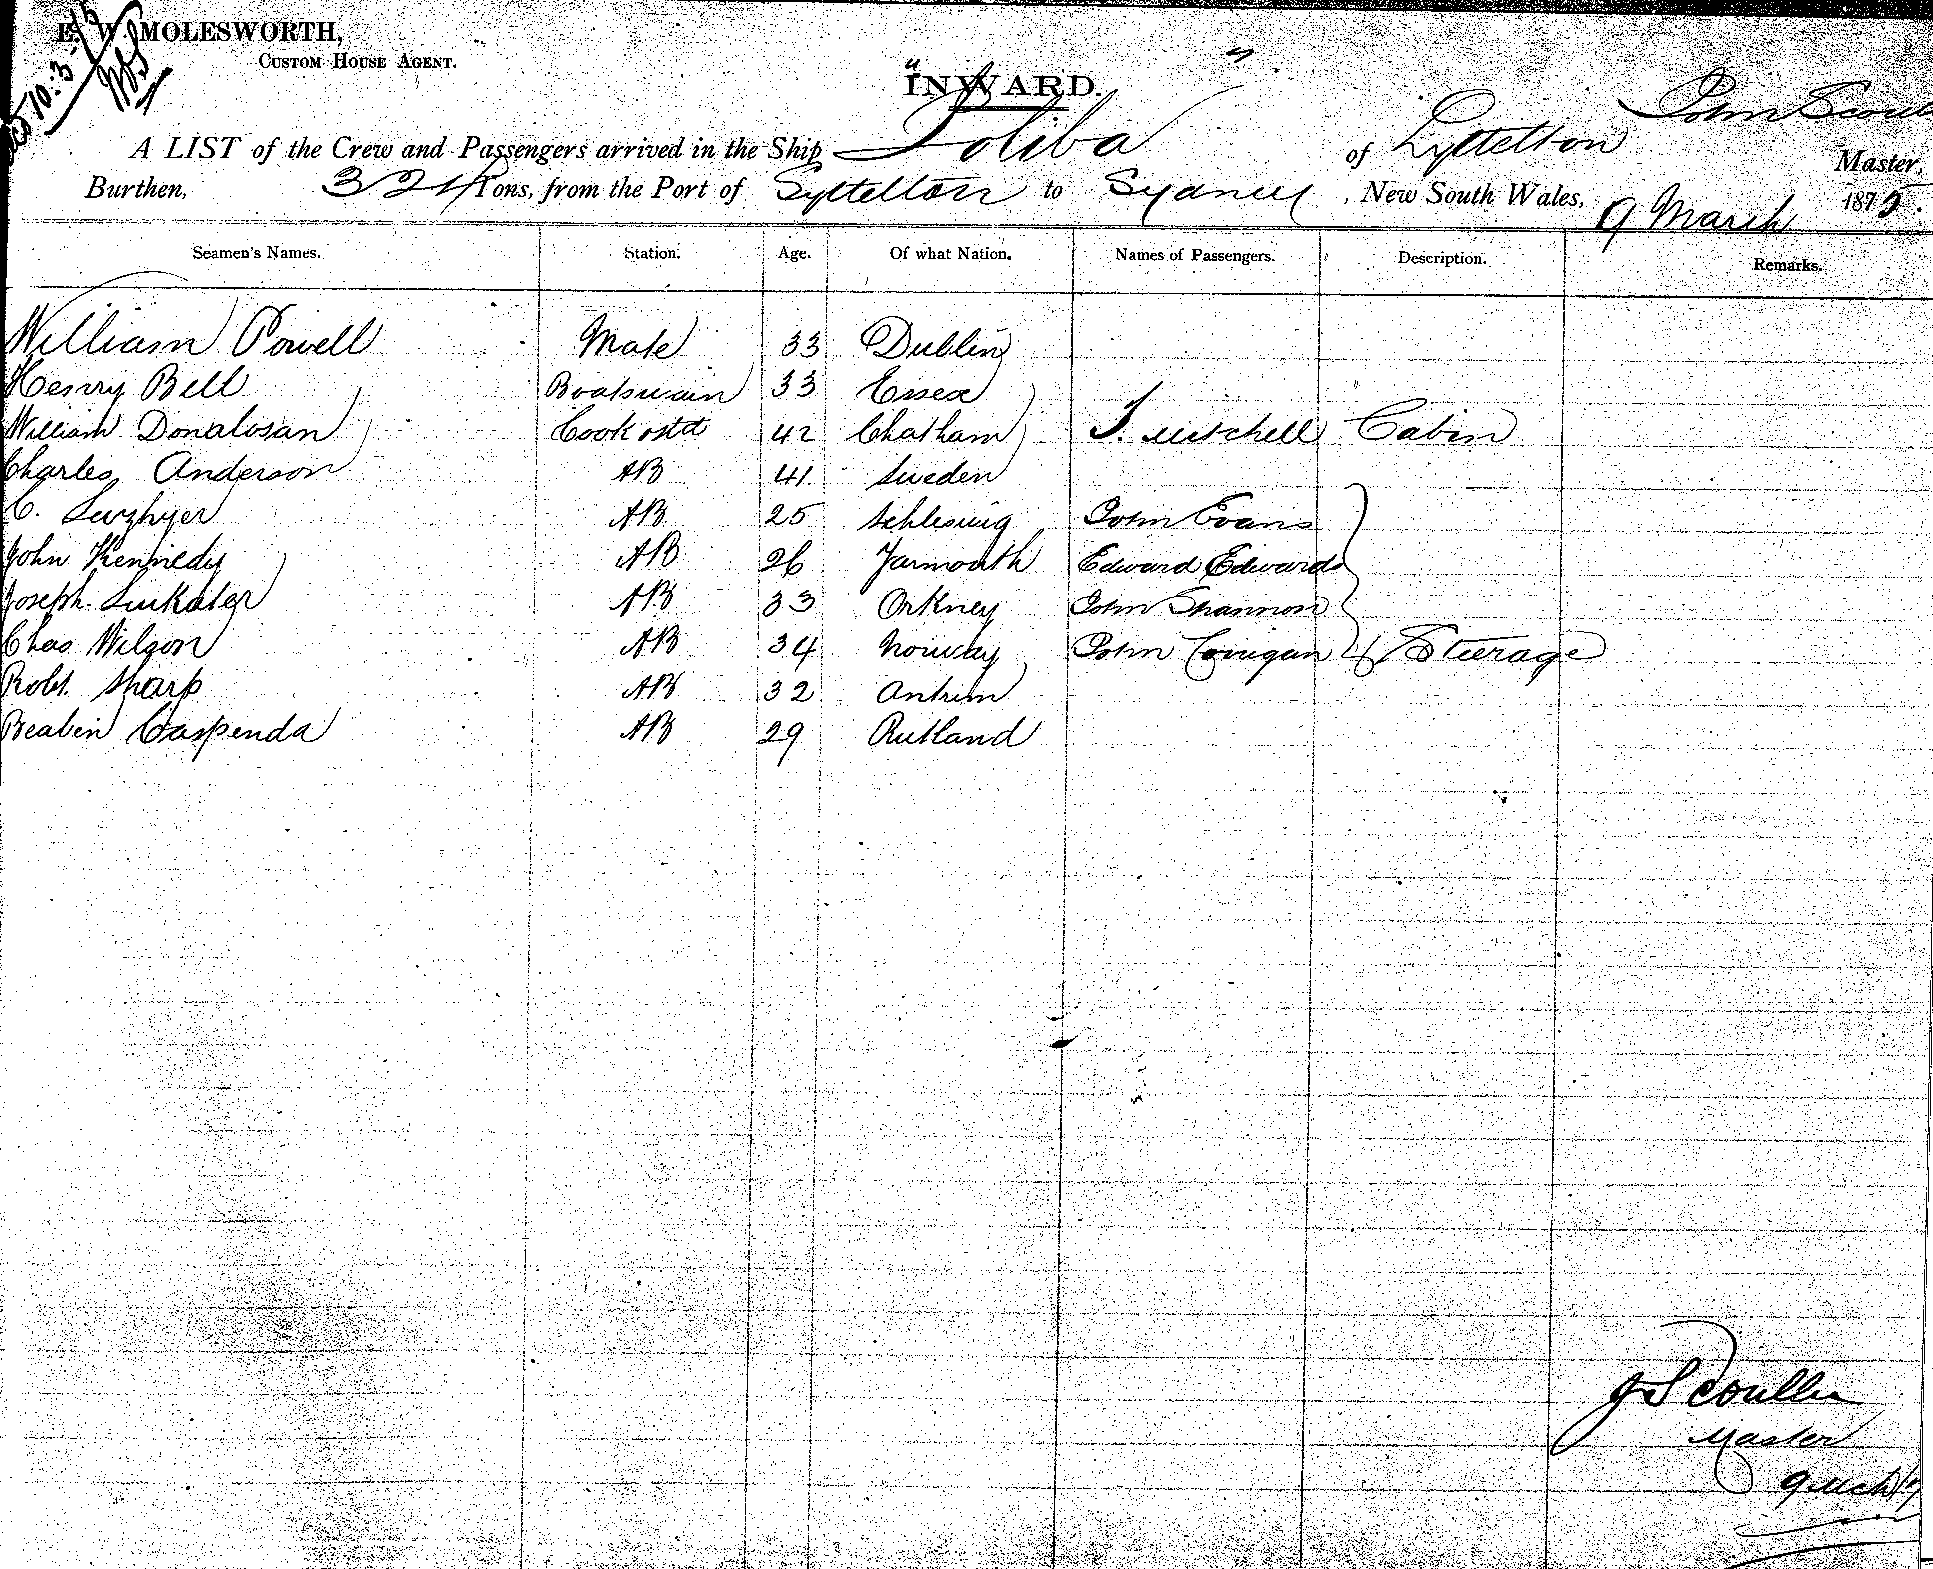 E. W. MOLESWORTH,
CUSTOM HOUSE AGENT.
INWARD.
A LIST of the Crew and Passengers arrived in the Ship "Joliba" of Lyttelton John Master,
Burthen, 321 Tons, from the Port of Lyttelton to Sydney, New South Wales, 9 March 1875.
Seamen's Names. Station. Age. Of what Nation. Names of Passengers. Description. Remarks.
William Powell Mate 33 Dublin
Henry Bell Boatswain 33 Essex
William Donalosan Cook & std 42 Chatham J. Mitchell Cabin
Charles Anderson AB 41 Sweden
C. AB 25 Schleswig John Evans
John Kennedy AB 26 Yarmouth Edward Edwards
Joseph AB 33 Orkney John Shannon
Chas Wilson AB 34 Norway John Corrigan Steerage
Robt. Sharp AB 32 Antrim
AB 29 Rutland
J Scoullar
Master